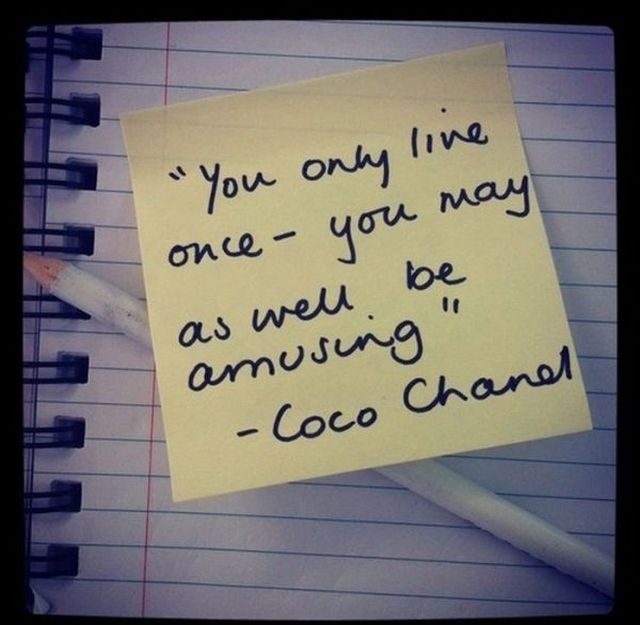 "You only live
once - you may
as well be
amusing"
- Coco Chanel